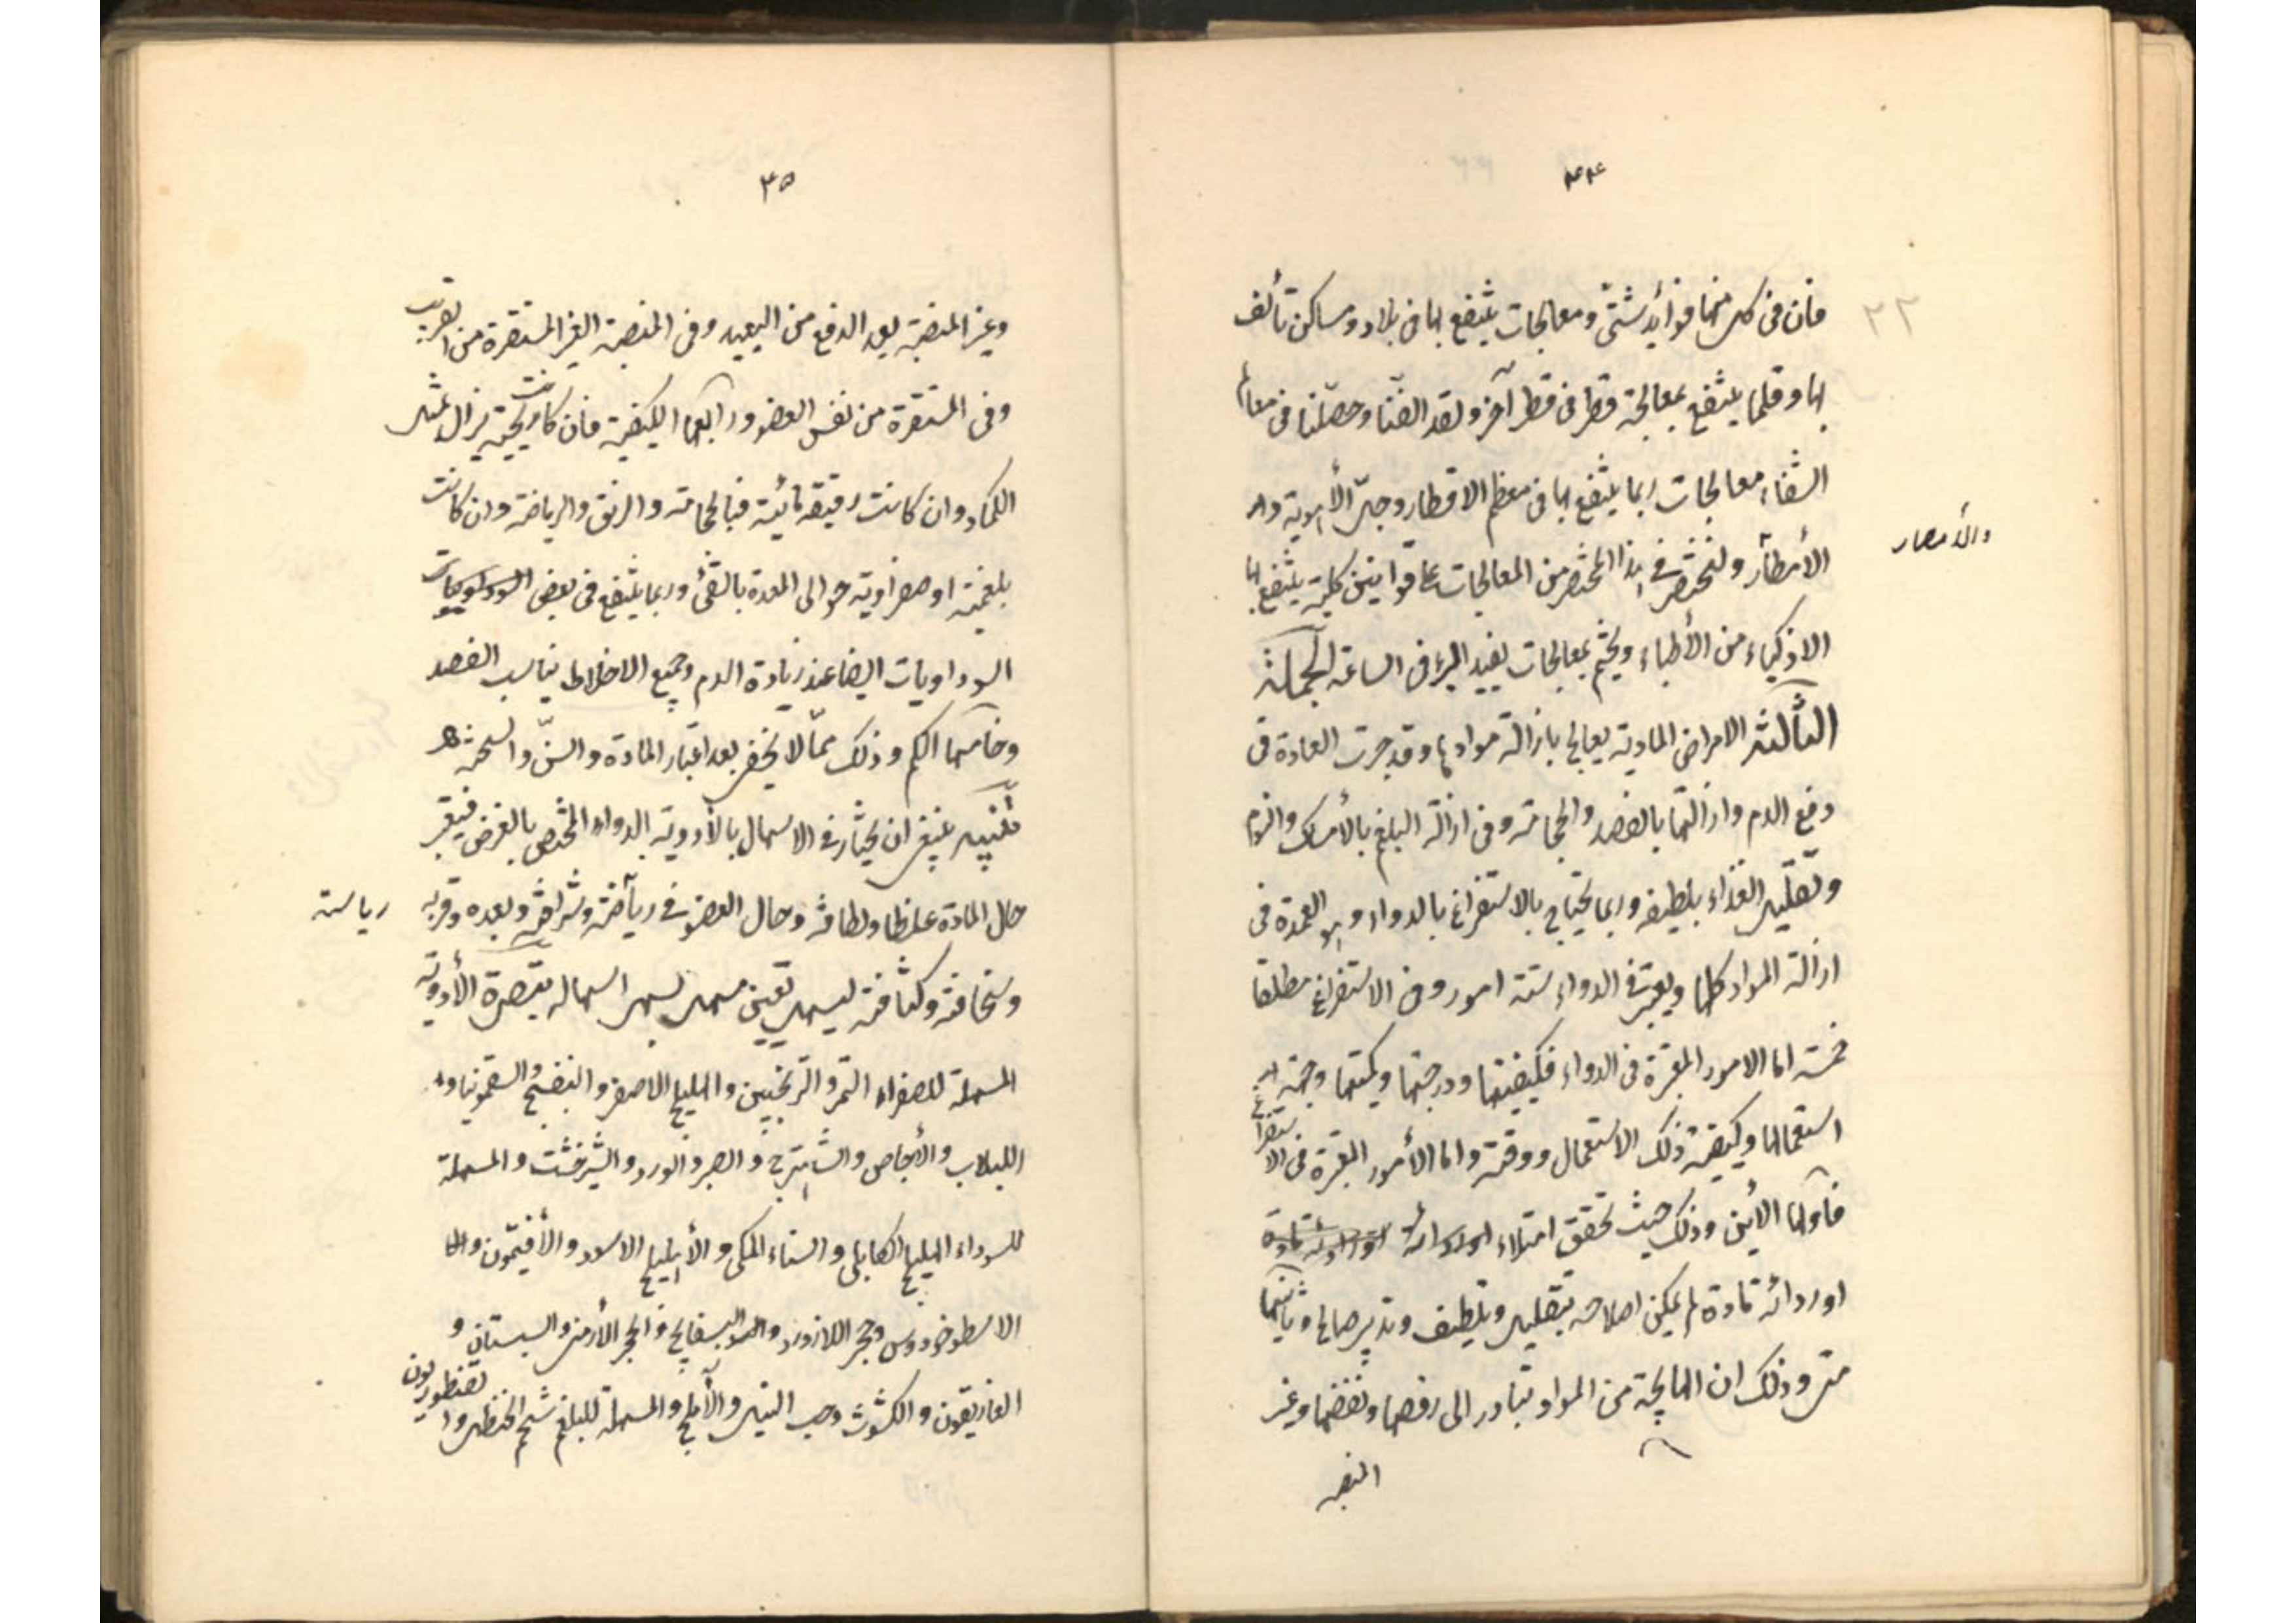 ٣٤
فان فى كل منها فوائد شتىّ ومعالجات ينتفع بها فى بلاد ومساكن تألف
بها وقلما ينتفع بمعالجة قطر فى قطر آخر ولقد الفنّا وحصّلنا فى معالم
الشفاء معالجات ربما ينتفع بها فى معظم الاقطار وجلّ الأهوية و
والأمصار
الأمطار ولنختصر فى هذا المختصر من المعالجات على قوانين كلية ينتفع بها
الاذكياء من الأطباء ونختم بمعالجات تفيد البرء فى الساعة الجملة
الثالثة الامراض المادية يعالج بازالة موادها وقد جرت العادة فى
دفع الدم وازالتها بالفصد والحجامة وفى ازالة البلغم بالأمساك والنوم
وتقليل الغذاء بلطيفه وربما يحتاج بالاستفراغ بالدواء وهو العمدة فى
ازالة المواد كلها ويعتبر فى الدواء ستة امور وفى الاستفراغ مطلقا
خمسة اما الامور المعتبرة فى الدواء فكيفيتها ودرجتها وكميتها وجهة
استعمالها وكيفية ذلك الاستعمال ووقته واما الأمور المعتبرة فى الاستفراغ
فأولها الأين وذلك حيث تحقق امتلاء
او ردائة مادة لم يمكن اصلاحه بتقليل وتلطيف وتدبير صالح وثانيها
متى وذلك ان الهايجة من المواد تبادر الى رفعها ونفضها وغير
النضجه
٣٥
وغير المنضجة بعد الدفع من البعيد وفى المنصبة الغير المستقرة من القريب
وفى المستقرة من نفس العضو ورابعها الكيفية فان كانت ريحية يزال بمثل
الكماد وان كانت رقيقة مائية فبالحجامة والزيق والرياضة وان كانت
بلغمية او صفراوية حوالى المعدة بالقئ وربما ينتفع فى بعض
السوداويات ايضا عند زيادة الدم وجميع الاخلاط يناسب الفصد
وخامسها الكم وذلك ممّا لا يخفى بعد اعتبار المادة والسنّ والسحنة
تنبيه ينبغى ان يختار فى الاسهال بالأدوية الدواء المختص بالغرض فيعتبر
حال المادة غلظا ولطافة وحال العضو فى رياضة وشرافته وبعده وقربه
رياسته
وسخافته وكثافته ليسهل تعيين مسهل يسهل اسهاله تبصرة الأدوية
المسهلة للصفراء التمر والترنجبين والهليلج الاصفر والبنفسج والسقمونيا و
اللبلاب والأجاص والشاهترج والصبر والورد والشيرخشت والمسهلة
للسوداء الهليلج الكابلى والسناء المكى والأهليلج الاسود والأفتيمون و
الاسطوخودوس وحجر اللازورد والبسفايج والحجر الأرمنى والسبستان و
الغاريقون والكشوث وحب النيل والأملج والمسهلة للبلغم شحم الحنظل والقنطوريون